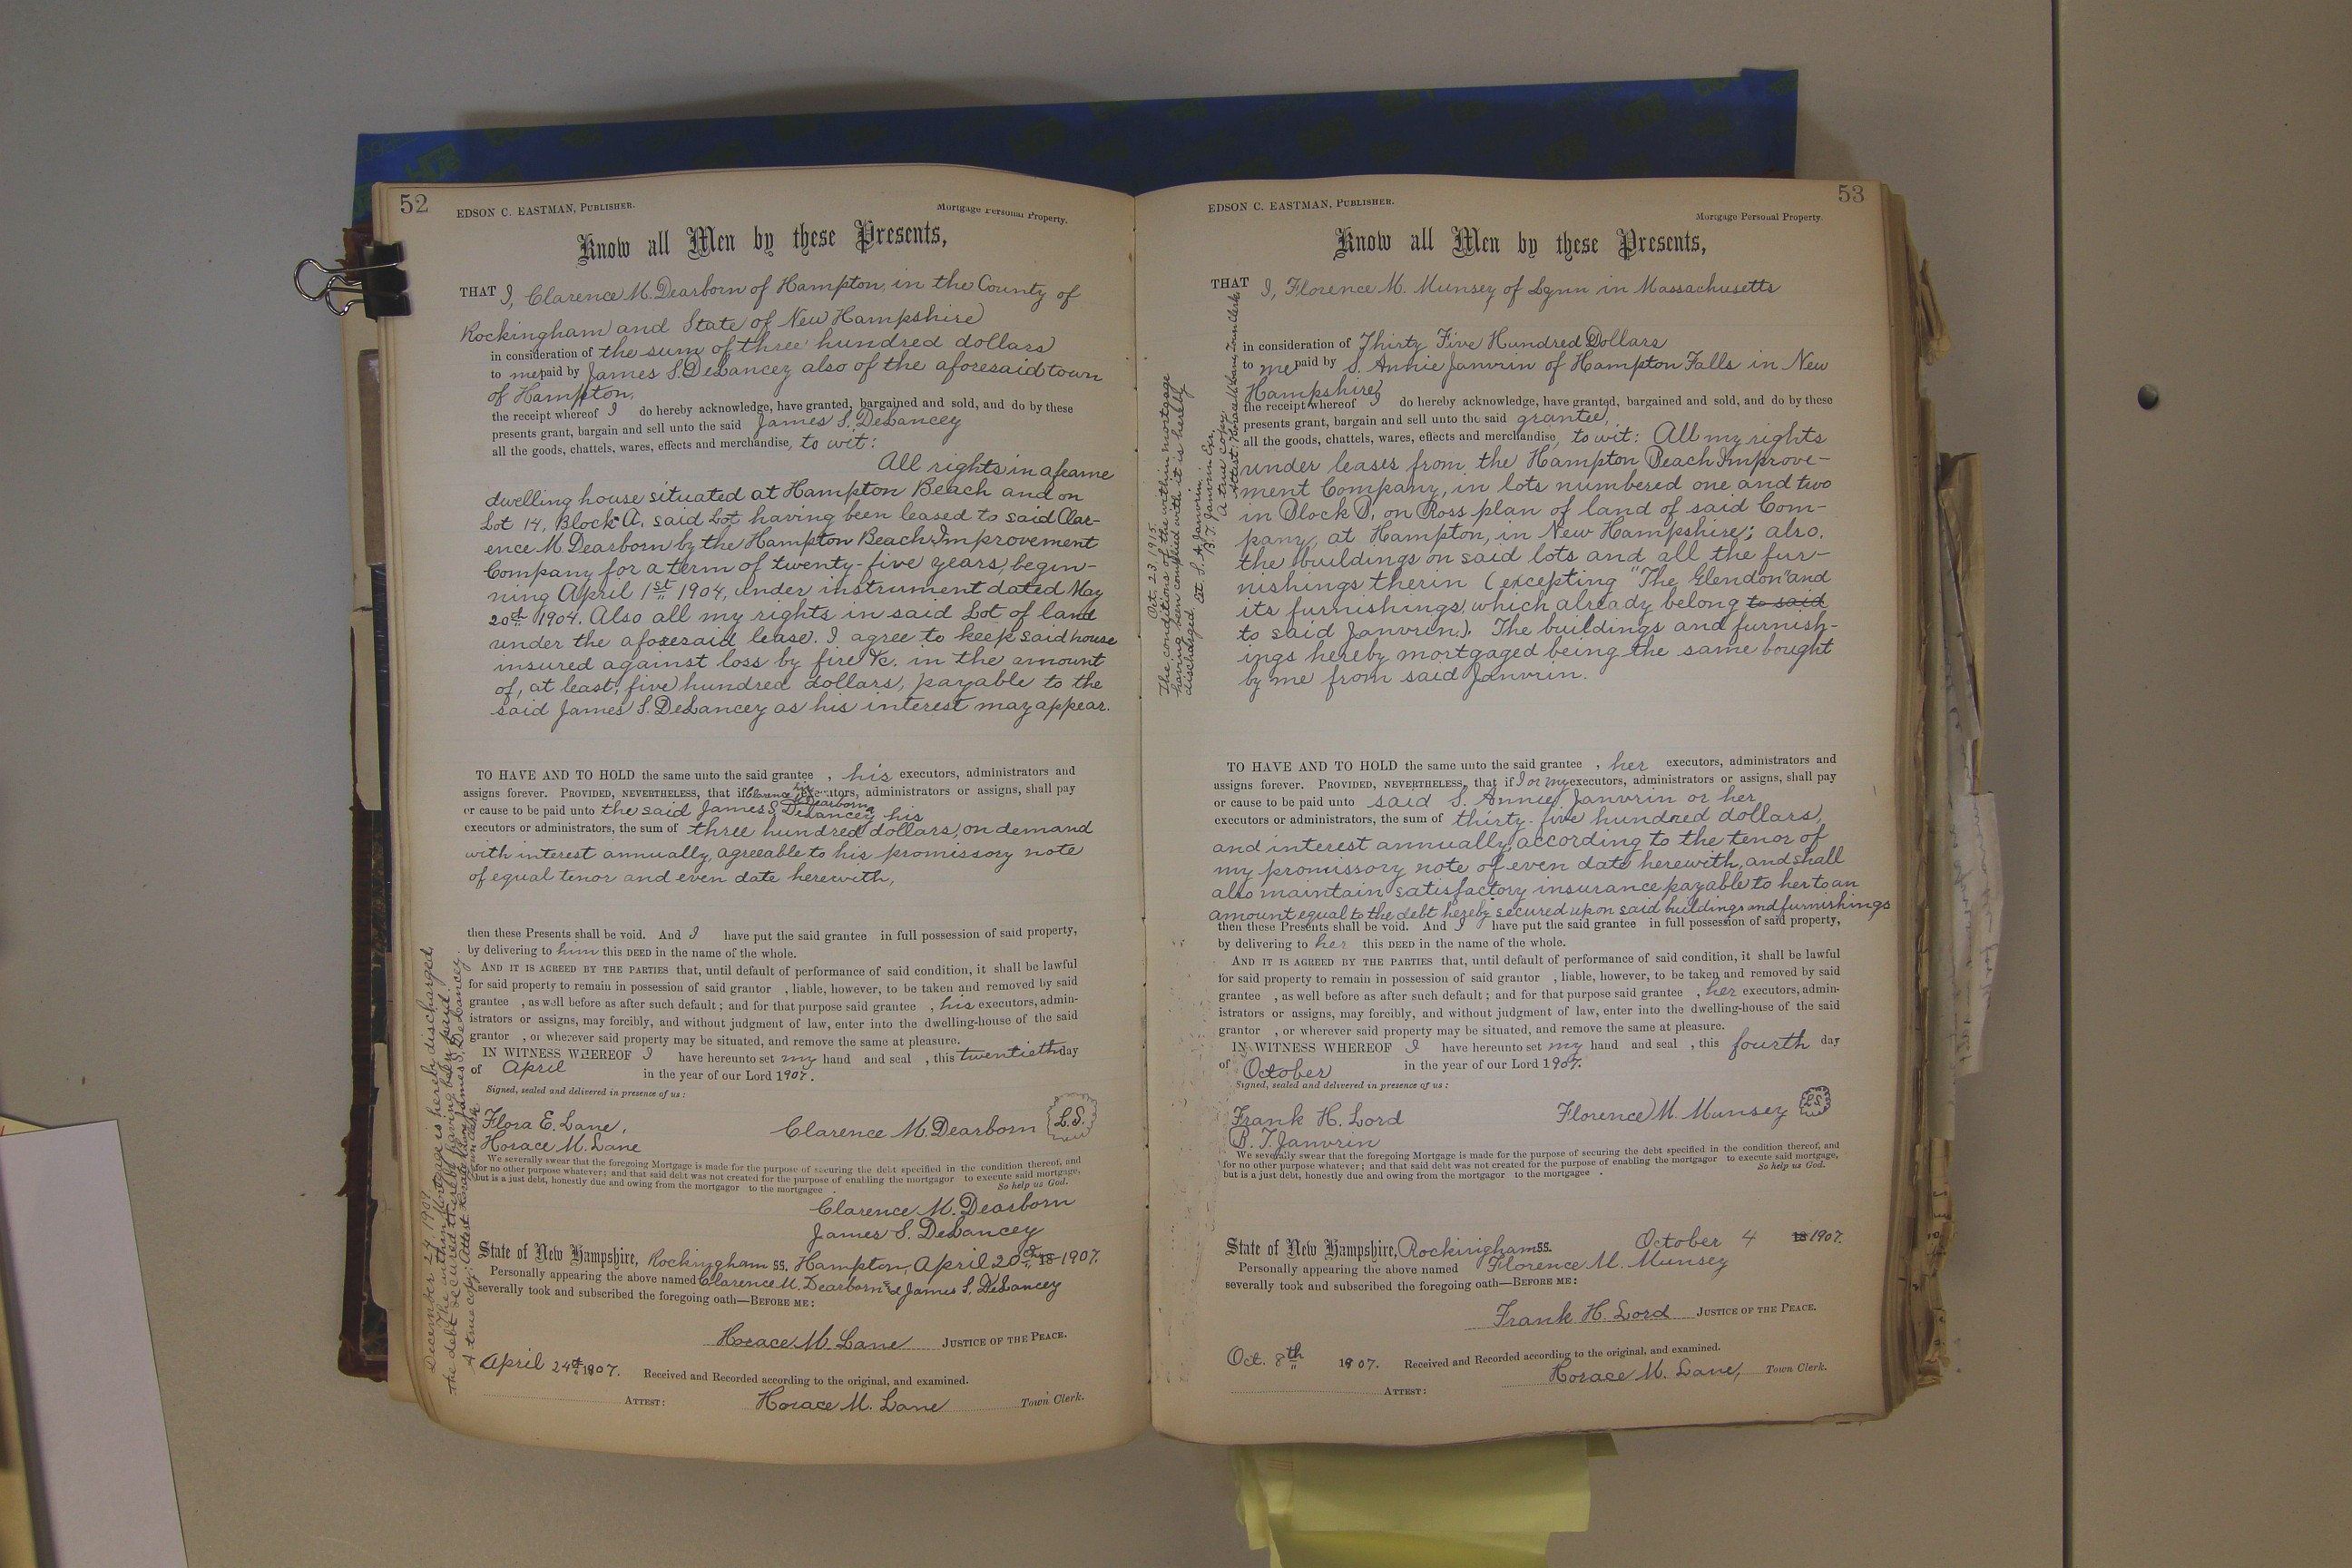 52
EDSON C. EASTMAN, PUBLISHER.
Mortgage Personal Property.
Know all Men by these Presents,
THAT I, Clarence M. Dearborn of Hampton, in the County of
Rockingham and State of New Hampshire
in consideration of the sum of three hundred dollars
to me paid by James S. DeLancey also of the aforesaid town
of Hampton,
the receipt whereof I do hereby acknowledge, have granted, bargained and sold, and do by these
presents grant, bargain and sell unto the said James S. DeLancey
all the goods, chattels, wares, effects and merchandise, to wit:
All rights in a frame
dwelling house situated at Hampton Beach and on
Lot 14, Block A. said Lot having been leased to said Clar-
ence M. Dearborn by the Hampton Beach Improvement
Company for a term of twenty-five years, begin-
ning April 1st 1904, under instrument dated May
20th 1904. Also all my rights in said Lot of land
under the aforesaid lease. I agree to keep said house
insured against loss by fire &c. in the amount
of, at least, five hundred dollars, payable to the
said James S. DeLancey as his interest may appear.
TO HAVE AND TO HOLD the same unto the said grantee , his executors, administrators and
assigns forever. PROVIDED, NEVERTHELESS, that if Clarence M. Dearborn his executors, administrators or assigns, shall pay
or cause to be paid unto the said James S. DeLancey his
executors or administrators, the sum of three hundred dollars, on demand
with interest annually, agreeable to his promissory note
of equal tenor and even date herewith,
then these Presents shall be void. And I have put the said grantee in full possession of said property,
by delivering to him this DEED in the name of the whole.
AND IT IS AGREED BY THE PARTIES that, until default of performance of said condition, it shall be lawful
for said property to remain in possession of said grantor , liable, however, to be taken and removed by said
grantee , as well before as after such default; and for that purpose said grantee , his executors, admin-
istrators or assigns, may forcibly, and without judgment of law, enter into the dwelling-house of the said
grantor , or wherever said property may be situated, and remove the same at pleasure.
IN WITNESS WHEREOF I have hereunto set my hand and seal , this twentieth day
of April in the year of our Lord 1907.
Signed, sealed and delivered in presence of us:
Flora E. Lane,
Horace M. Lane
Clarence M. Dearborn L.S.
We severally swear that the foregoing Mortgage is made for the purpose of securing the debt specified in the condition thereof, and
for no other purpose whatever; and that said debt was not created for the purpose of enabling the mortgagor to execute said mortgage,
but is a just debt, honestly due and owing from the mortgagor to the mortgagee . So help us God.
Clarence M. Dearborn
James S. DeLancey
State of New Hampshire, Rockingham ss. Hampton, April 20th, 18 1907.
Personally appearing the above named Clarence M. Dearborn & James S. DeLancey
severally took and subscribed the foregoing oath—BEFORE ME:
Horace M. Lane JUSTICE OF THE PEACE.
April 24th 1907. Received and Recorded according to the original, and examined.
ATTEST: Horace M. Lane Town Clerk.
December 24, 1909
The within Mortgage is hereby discharged,
the debt secured thereby having been paid.
James S. DeLancey
A true copy: Attest Horace M. Lane
Town Clerk
53
EDSON C. EASTMAN, PUBLISHER.
Mortgage Personal Property.
Know all Men by these Presents,
THAT I, Florence M. Munsey of Lynn in Massachusetts
in consideration of Thirty Five Hundred Dollars
to me paid by S. Annie Janvrin of Hampton Falls in New
Hampshire,
the receipt whereof I do hereby acknowledge, have granted, bargained and sold, and do by these
presents grant, bargain and sell unto the said grantee,
all the goods, chattels, wares, effects and merchandise, to wit: All my rights
under leases from the Hampton Beach Improve-
ment Company, in lots numbered one and two
in Block B, on Ross plan of land of said Com-
pany, at Hampton, in New Hampshire; also,
the buildings on said lots and all the fur-
nishings therin (excepting "The Glendon" and
its furnishings, which already belong to said
to said Janvrin). The buildings and furnish-
ings hereby mortgaged being the same bought
by me from said Janvrin.
TO HAVE AND TO HOLD the same unto the said grantee , her executors, administrators and
assigns forever. PROVIDED, NEVERTHELESS, that if I or my executors, administrators or assigns, shall pay
or cause to be paid unto said S. Annie Janvrin or her
executors or administrators, the sum of thirty-five hundred dollars,
and interest annually, according to the tenor of
my promissory note of even date herewith, and shall
also maintain satisfactory insurance payable to her to an
amount equal to the debt hereby secured upon said buildings and furnishings
then these Presents shall be void. And I have put the said grantee in full possession of said property,
by delivering to her this DEED in the name of the whole.
AND IT IS AGREED BY THE PARTIES that, until default of performance of said condition, it shall be lawful
for said property to remain in possession of said grantor , liable, however, to be taken and removed by said
grantee , as well before as after such default; and for that purpose said grantee , her executors, admin-
istrators or assigns, may forcibly, and without judgment of law, enter into the dwelling-house of the said
grantor , or wherever said property may be situated, and remove the same at pleasure.
IN WITNESS WHEREOF I have hereunto set my hand and seal , this fourth day
of October in the year of our Lord 1907.
Signed, sealed and delivered in presence of us:
Frank H. Lord
B. T. Janvrin
Florence M. Munsey L.S.
We severally swear that the foregoing Mortgage is made for the purpose of securing the debt specified in the condition thereof, and
for no other purpose whatever; and that said debt was not created for the purpose of enabling the mortgagor to execute said mortgage,
but is a just debt, honestly due and owing from the mortgagor to the mortgagee . So help us God.
State of New Hampshire, Rockingham ss. October 4 18 1907.
Personally appearing the above named Florence M. Munsey
severally took and subscribed the foregoing oath—BEFORE ME:
Frank H. Lord JUSTICE OF THE PEACE.
Oct. 8th 1907. Received and Recorded according to the original, and examined.
ATTEST: Horace M. Lane, Town Clerk.
Oct. 23, 1915.
The conditions of the within mortgage
having been complied with it is hereby
discharged
Est. S. A. Janvrin,
B. T. Janvrin Exr.
A true copy
Attest: Horace M. Lane, Town Clerk